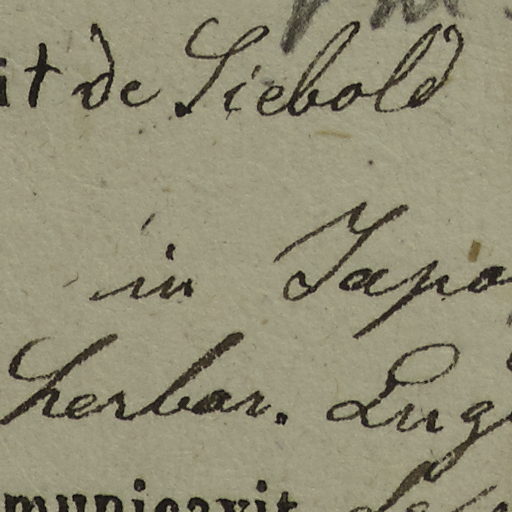 it de Siebold
in Japo
herbar. Lug
municavit